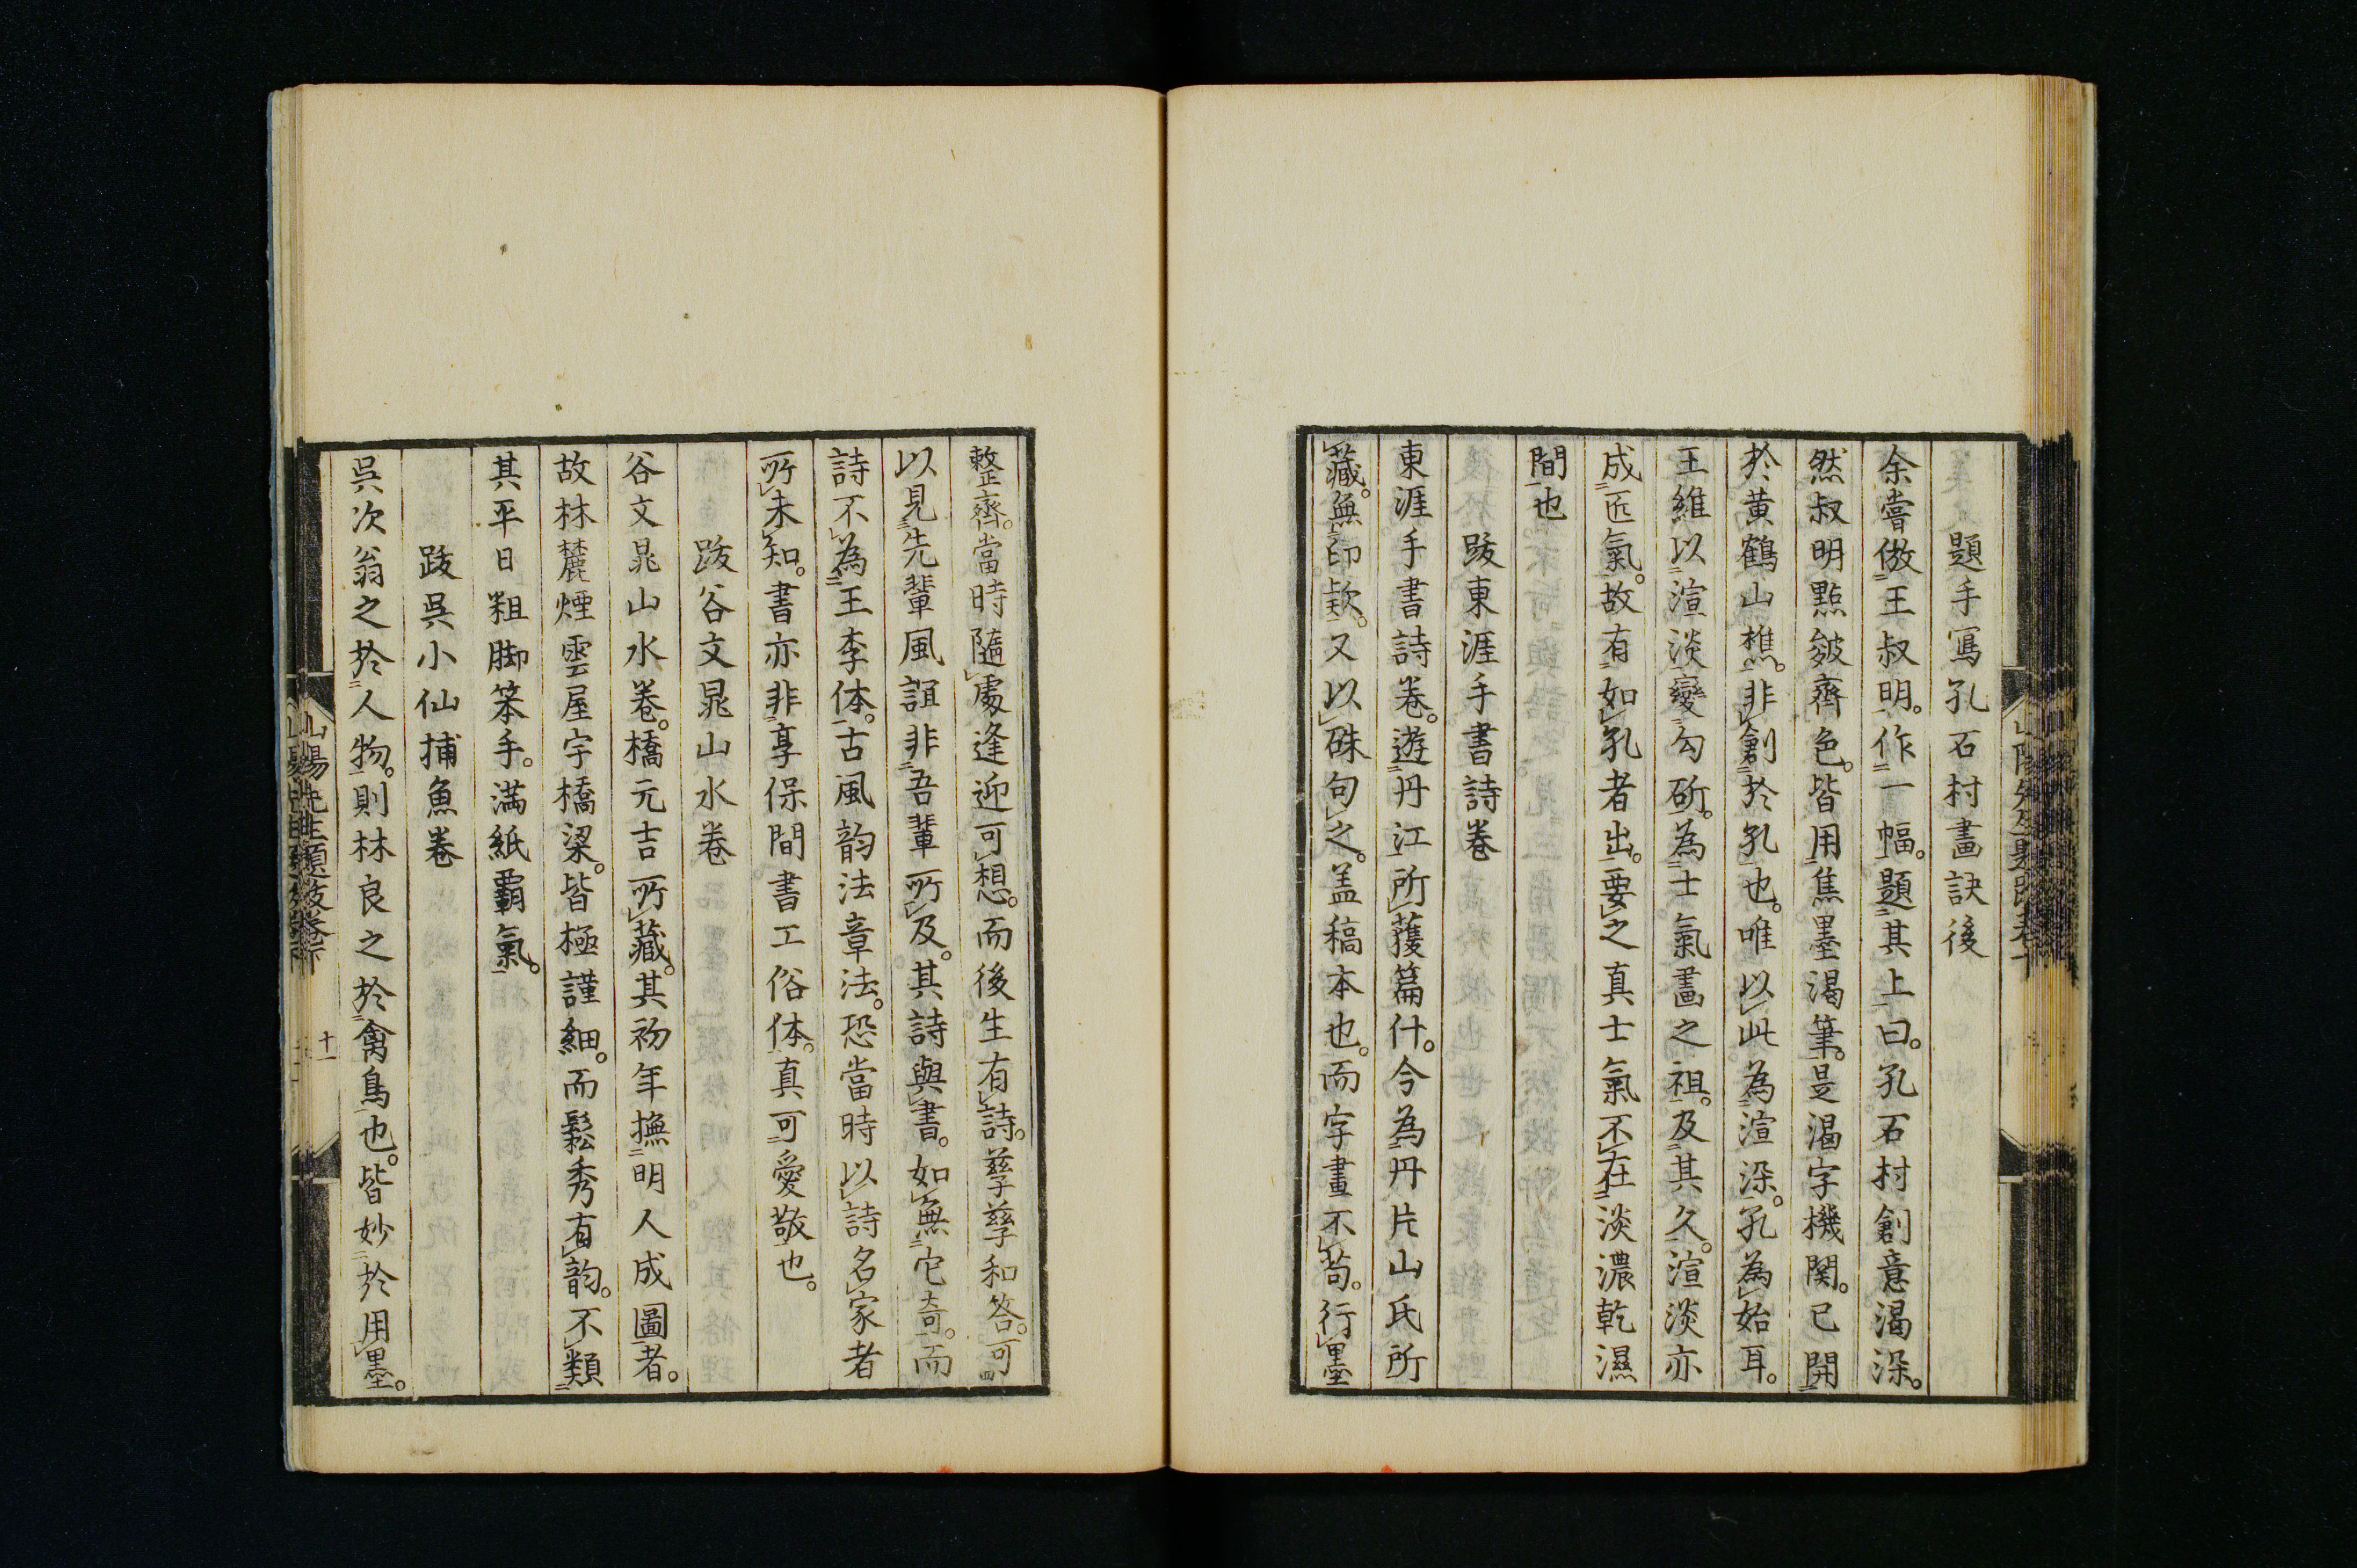 題手寫孔石村畫訣後
余嘗倣王叔明。作一幅。題其上曰。孔石村創意渴染。
然叔明點皴齊色。皆用焦墨渴筆。是渴字機関。已開
於黄鶴山樵。非創於孔也。唯以此為渲染。孔為始耳。
王維以渲淡變勾斫。為士氣畫之祖。及其久。渲淡亦
成匠氣。故有如孔者出。要之真士氣不在淡濃乾濕
間也
跋東涯手書詩卷
東涯手書詩卷。遊丹江所獲篇什。今為丹片山氏所
藏。無印款。又以硃句之。盖稿本也。而字畫不苟。行墨
整齊。當時隨處逢迎可想。而後生有詩。孳孳和答。可
以見先輩風誼非吾輩所及。其詩與書。如無它奇。而
詩不為王李体。古風韵法章法。恐當時以詩名家者
所未知。書亦非享保間書工俗体。真可愛敬也。
跋谷文晁山水卷
谷文晁山水卷。橋元吉所藏。其初年撫明人成圖者。
故林麓煙雲屋宇橋梁。皆極謹細。而鬆秀有韵。不類
其平日粗脚笨手。満紙覇氣。
跋呉小仙捕魚卷
呉次翁之於人物。則林良之於禽鳥也。皆妙於用墨。
山陽先生題跋卷下
十一